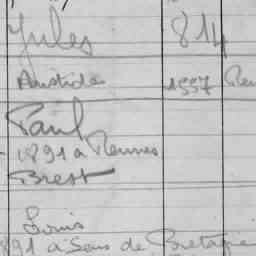 Jules 814
Aristide 1557 Ren
Paul
1891 à Rennes
Brest
Louis
891 à Sens de Bretagne